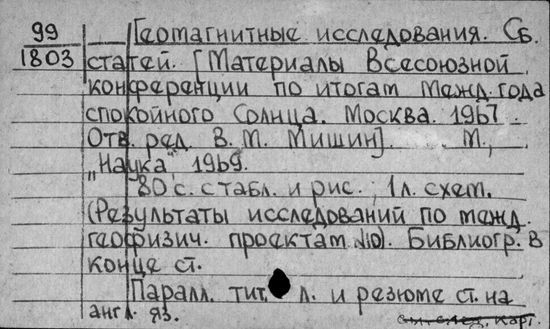 99 Геомагнитные исследования. Сб.
1803 статей. [Материалы Всесоюзной
конференции по итогам Межд. года
спокойного Солнца. Москва. 1967.
Отв. ред. В. М. Мишин]. М.,
"Наука", 1969.
80 с. с табл. и рис.; 1 л. схем.
(Результаты исследований по межд.
геофизич. проектам №10). Библиогр. в
конце ст.
Паралл. тит. л. и резюме ст. на
англ. яз. см. след. карт.